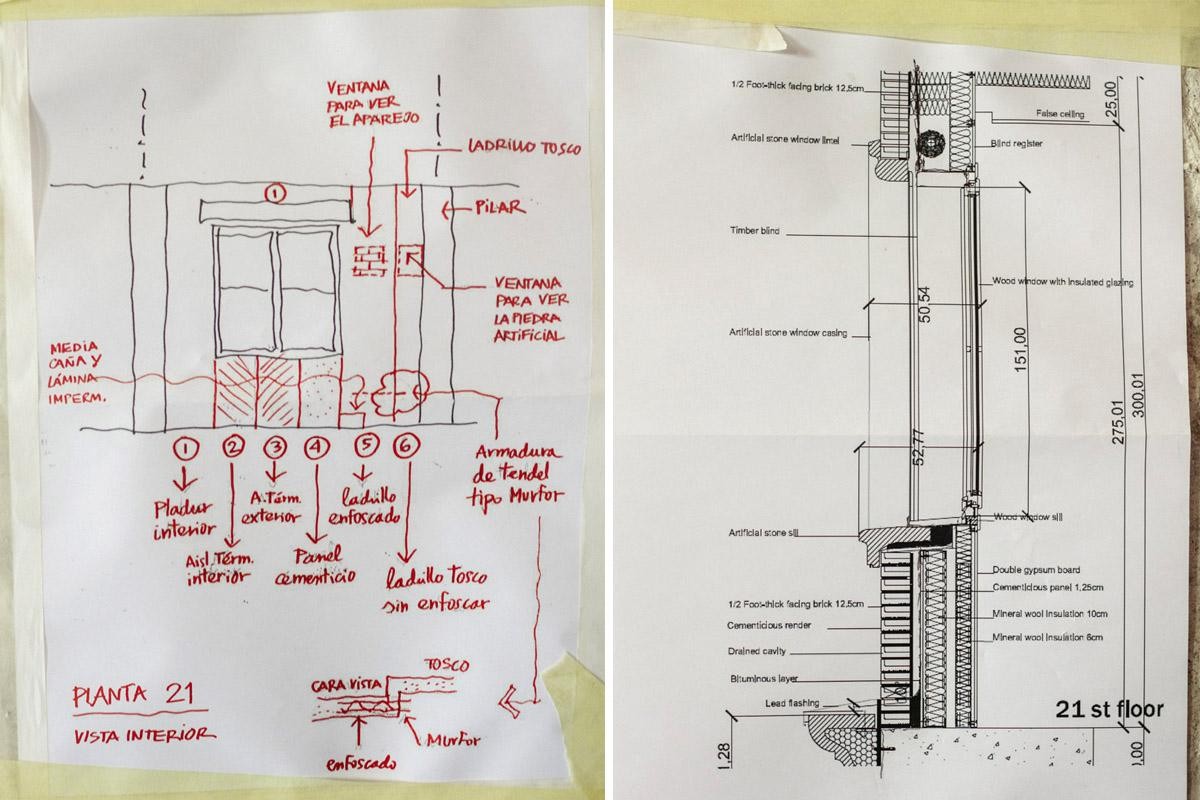 VENTANA
PARA VER
EL APAREJO
LADRILLO TOSCO
1
PILAR
VENTANA
PARA VER
LA PIEDRA
ARTIFICIAL
MEDIA
CAÑA Y
LÁMINA
IMPERM.
1 2 3 4 5 6
Pladur
interior
Aisl. Térm.
interior
A. Térm.
exterior
Panel
cementicio
ladrillo
enfoscado
ladrillo Tosco
sin enfoscar
Armadura
de tendel
tipo Murfor
PLANTA 21
VISTA INTERIOR
TOSCO
CARA VISTA
Murfor
enfoscado
1/2 Foot-thick facing brick 12.5cm
Artificial stone window lintel
Timber blind
Artificial stone window casing
Artificial stone sill
1/2 Foot-thick facing brick 12.5cm
Cementicious render
Drained cavity
Bituminous layer
Lead flashing
False ceiling
Blind register
Wood window with insulated glazing
Wood window sill
Double gypsum board
Cementicious panel 1,25cm
Mineral wool insulation 10cm
Mineral wool insulation 6cm
25,00
50,54
151,00
52,77
275,01
300,01
21 st floor
1,28